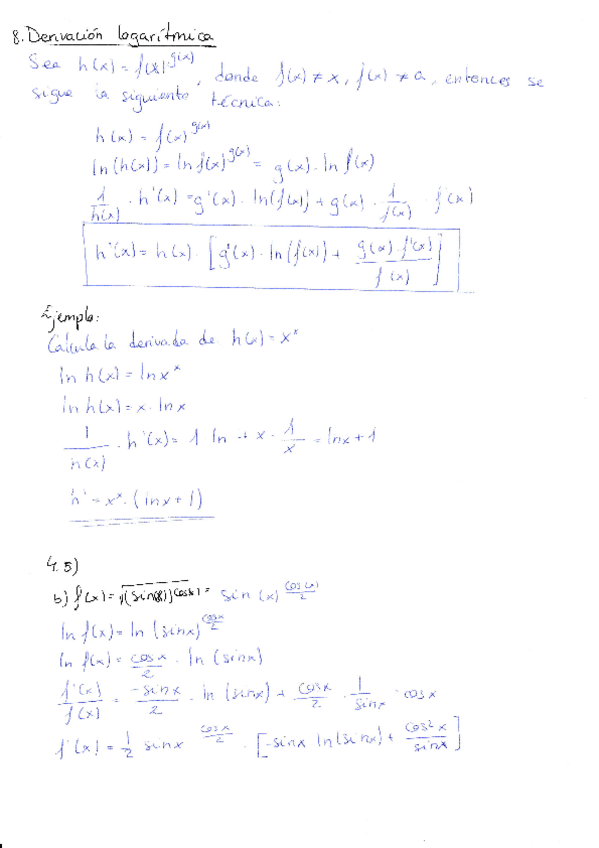 8. Derivación logarítmica
Sea h(x) = f(x)^g(x), donde f(x) ≠ x, f(x) ≠ a, entonces se
sigue la siguiente técnica:
h(x) = f(x)^g(x)
ln(h(x)) = ln f(x)^g(x) = g(x) · ln f(x)
1/h(x) · h'(x) = g'(x) · ln(f(x)) + g(x) · 1/f(x) · f'(x)
h'(x) = h(x) · [g'(x) · ln(f(x)) + g(x) · f'(x)/f(x)]
Ejemplo:
Calcula la derivada de h(x) = x^x
ln h(x) = ln x^x
ln h(x) = x · ln x
1/h(x) · h'(x) = 1 ln + x · 1/x = ln x + 1
h' = x^x · (ln x + 1)
4.5)
b) f(x) = √(sin(x))^cos(x) = sin(x)^(cos(x)/2)
ln f(x) = ln (sin x)^(cos x/2)
ln f(x) = cos x/2 · ln (sin x)
f'(x)/f(x) = -sin x/2 · ln (sin x) + cos x/2 · 1/sin x · cos x
f'(x) = 1/2 sin x^(cos x/2) · [-sin x ln(sin x) + cos² x/sin x]